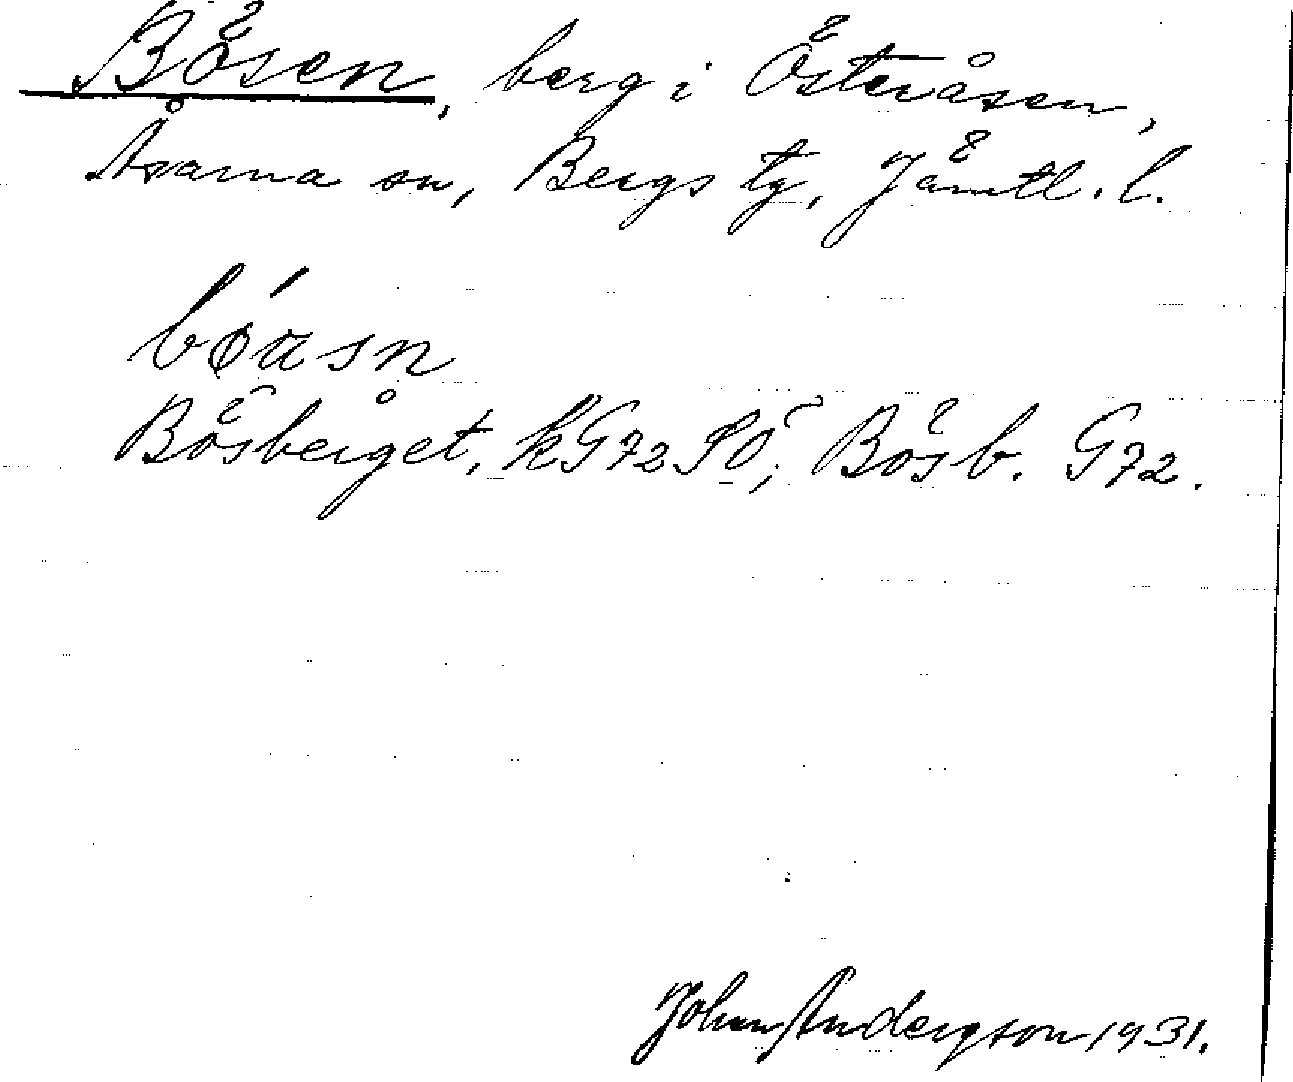 Bösen, berg i Österåsen,
Åsarna sn, Bergs tg, Jämtl. l.
bøʹasn
Bösberget, kG72SO; Bösb. G72.
Johan Andersson 1931.